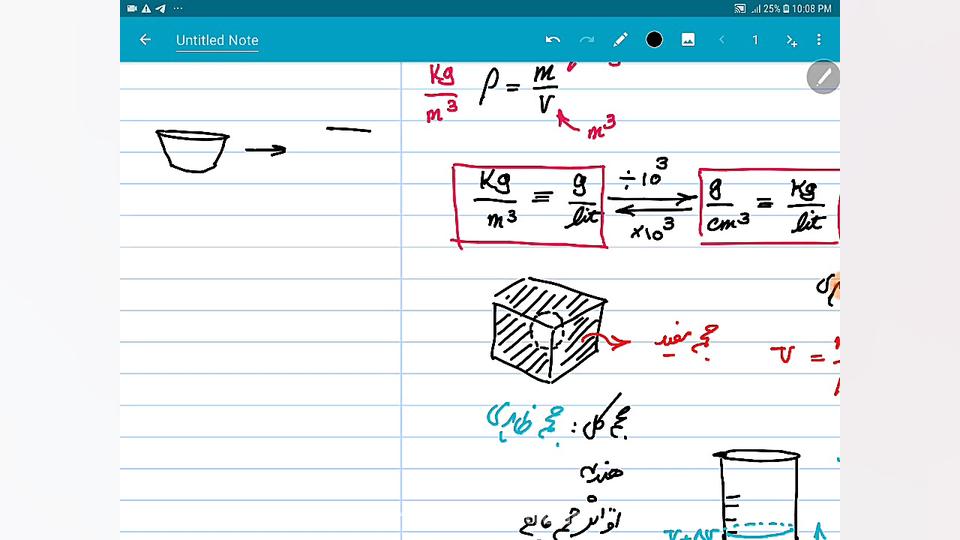 25% 10:08 PM
Untitled Note
1
Kg/m³ ρ = m/V
m³
Kg/m³ ≡ g/lit ÷10³ ×10³ g/cm³ = Kg/lit
حجم مفید
V =
حجم کل : حجم ظاهری
هندسه